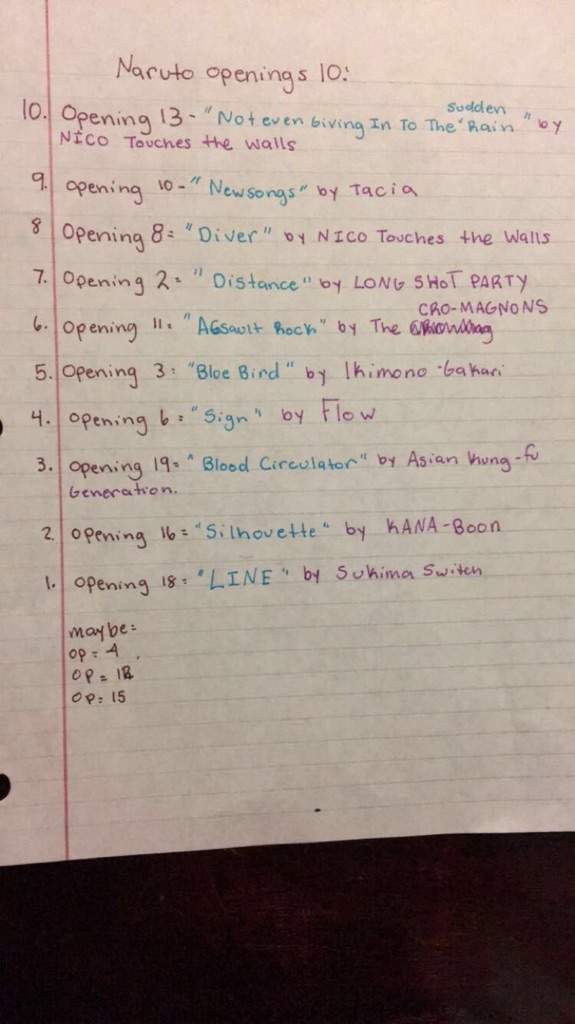 Naruto openings 10:
10. Opening 13 - "Not even Giving In To The Sudden Rain" by
NICO Touches the walls
9. opening 10 - "Newsongs" by Tacia
8 Opening 8: "Diver" by NICO Touches the Walls
7. Opening 2: "Distance" by LONG SHOT PARTY
6. Opening 11: "Assault Rock" by The CRO-MAGNONS
5. Opening 3: "Bloe Bird" by Ikimono-Gakari
4. opening 6: "Sign" by Flow
3. opening 19: "Blood Circulator" by Asian Kung-fu
Generation.
2. opening 16: "Silhovette" by KANA-Boon
1. opening 18: "LINE" by Sukima Switch
maybe:
OP = 4
OP =
OP: 15